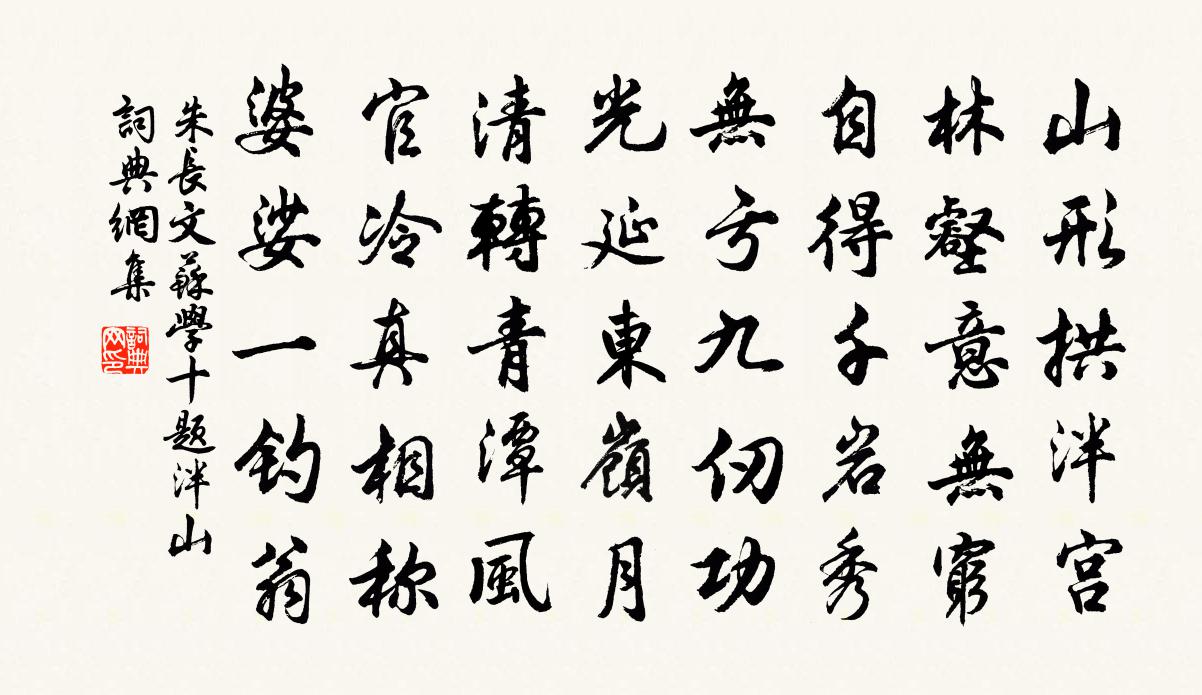 山形拱泮宮
林壑意無窮
自得千岩秀
無亏九仞功
光延東嶺月
清轉青潭風
官冷真相称
婆娑一釣翁
朱長文蘇學十题泮山
詞典網集
詞典网印